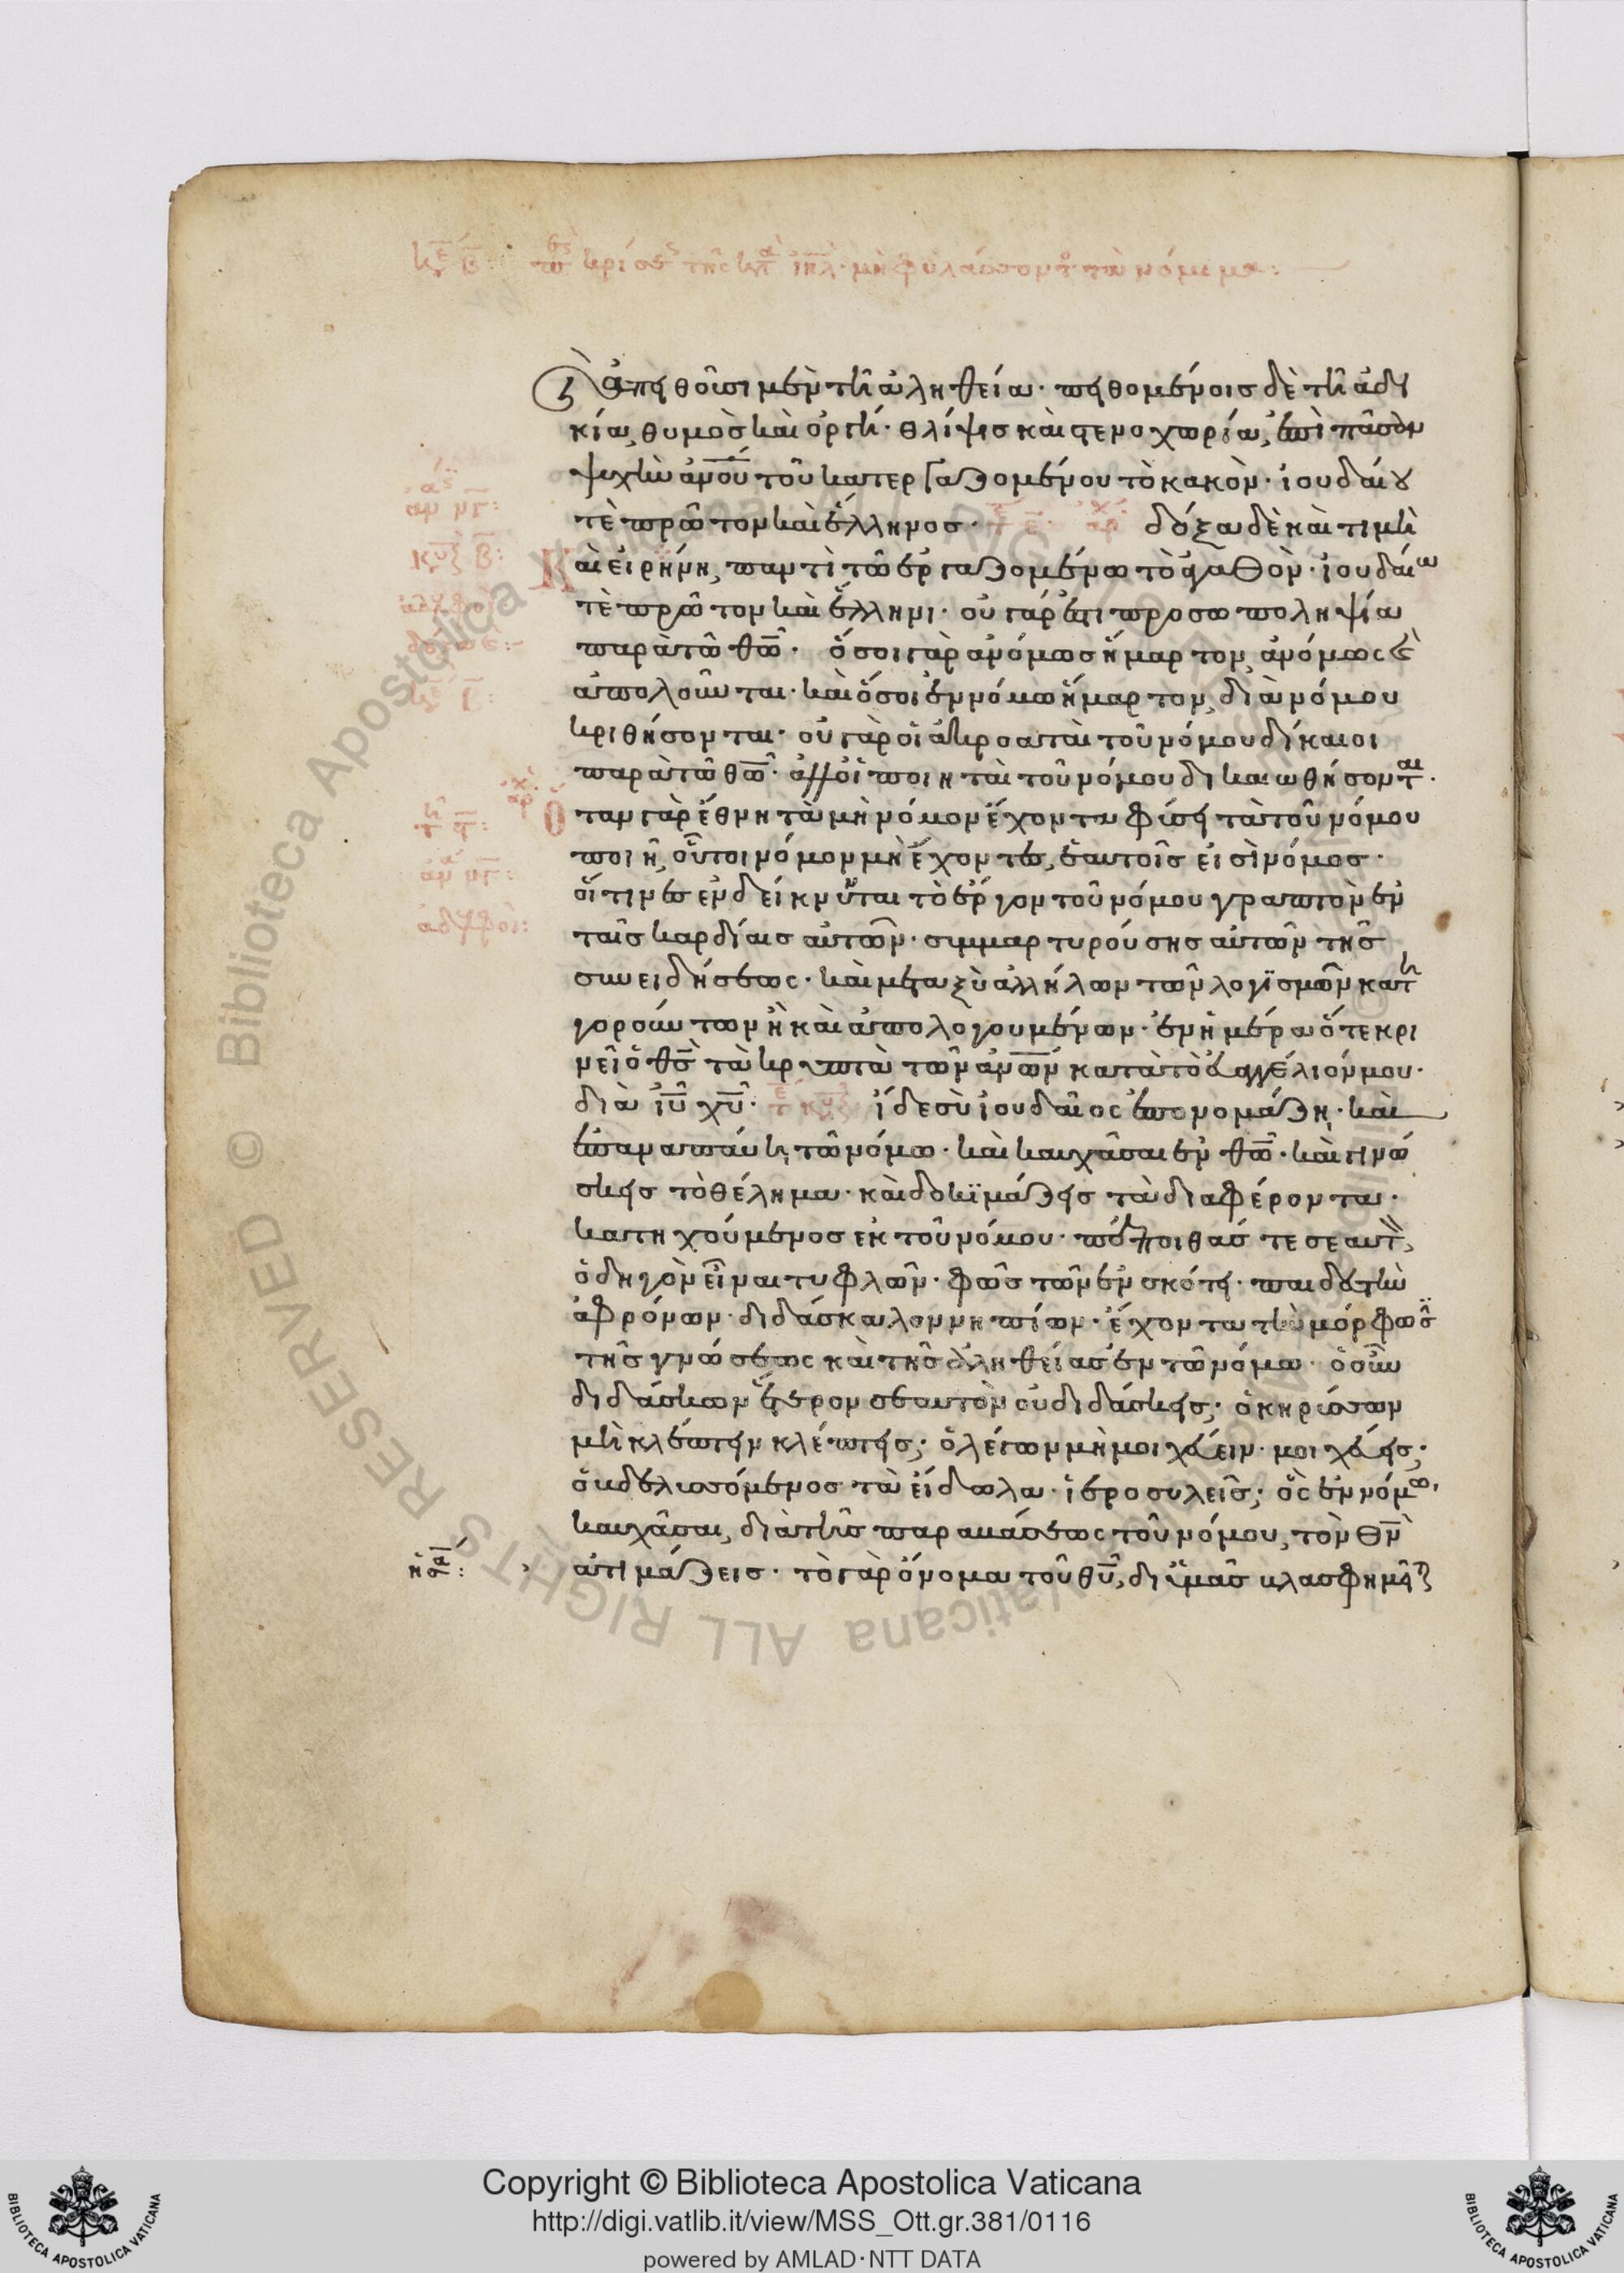 κε β: περὶ κρίσεως τῆς κατὰ ιηλ· μὴ φυλάσσοντος τὰ νόμιμα:
ἀπειθοῦσι μὲν τῆ ἀληθεία· πειθομένοις δὲ τῆ ἀδι
κία, θυμὸς καὶ ὀργή· θλίψις καὶ στενοχωρία, ἐπὶ πᾶσαν
ψυχὴν ἀνου τοῦ κατεργαζομένου τὸ κακὸν· ἰουδαίου
τὲ πρῶτον καὶ ἕλληνος· δόξα δὲ καὶ τιμὴ
Καὶ εἰρήνη, παντὶ τῶ ἐργαζομένω τὸ ἀγαθὸν· ἰουδαίω
τὲ πρῶτον καὶ ἕλληνι· οὐ γάρ ἐστι προσωποληψία
παρὰ τῶ θῶ· ὅσοι γὰρ ἀνόμως ἥμαρτον, ἀνόμως καὶ
ἀπολοῦνται· καὶ ὅσοι ἐν νόμω ἥμαρτον, διὰ νόμου
κριθήσονται· οὐ γὰρ οἱ ἀκροαταὶ τοῦ νόμου δίκαιοι
παρὰ τῶ θῶ· ἀλλ' οἱ ποιηταὶ τοῦ νόμου δικαιωθήσονται.
Ὅταν γὰρ ἔθνη τὰ μὴ νόμον ἔχοντα φύσει τὰ τοῦ νόμου
ποιῆ, οὗτοι νόμον μὴ ἔχοντες, ἑαυτοῖς εἰσὶ νόμος·
οἵτινες ἐνδείκνυνται τὸ ἔργον τοῦ νόμου γραπτὸν ἐν
ταῖς καρδίαις αὐτῶν· συμμαρτυρούσης αὐτῶν τῆς
συνειδήσεως· καὶ μεταξὺ ἀλλήλων τῶν λογϊσμῶν κατη
γορούντων ἢ καὶ ἀπολογουμένων· ἐν ἡμέρα ὅτε κρι
νεῖ ὁ θς τὰ κρυπτὰ τῶν ἀνων κατὰ τὸ εὐαγγέλιόν μου·
διὰ ιυ χυ· ἴδε σὺ ἰουδαῖος ἐπονομάζη· καὶ
ἐπαναπαύη τῶ νόμω· καὶ καυχᾶσαι ἐν θῶ· καὶ γινώ
σκεις τὸ θέλημα· καὶ δοκϊμάζεις τὰ διαφέροντα·
κατηχούμενος ἐκ τοῦ νόμου· πέποιθάς τε σεαυτὸν,
ὁδηγὸν εἶναι τυφλῶν· φῶς τῶν ἐν σκότει· παιδευτὴν
ἀφρόνων· διδάσκαλον νηπίων· ἔχοντα τὴν μόρφωσιν
τῆς γνώσεως καὶ τῆς ἀληθείας ἐν τῶ νόμω· ὁ οὖν
διδάσκων ἕτερον σεαυτὸν οὐ διδάσκεις; ὁ κηρύσσων
μὴ κλέπτειν κλέπτεις; ὁ λέγων μὴ μοιχεύειν· μοιχεύεις;
ὁ βδελυσσόμενος τὰ εἴδωλα· ἱεροσυλεῖς; ὃς ἐν νόμω,
καυχᾶσαι, διὰ τῆς παραβάσεως τοῦ νόμου, τὸν θν
ἀτιμάζεις· τὸ γὰρ ὄνομα τοῦ θυ, δι' ὑμᾶς βλασφημεῖται